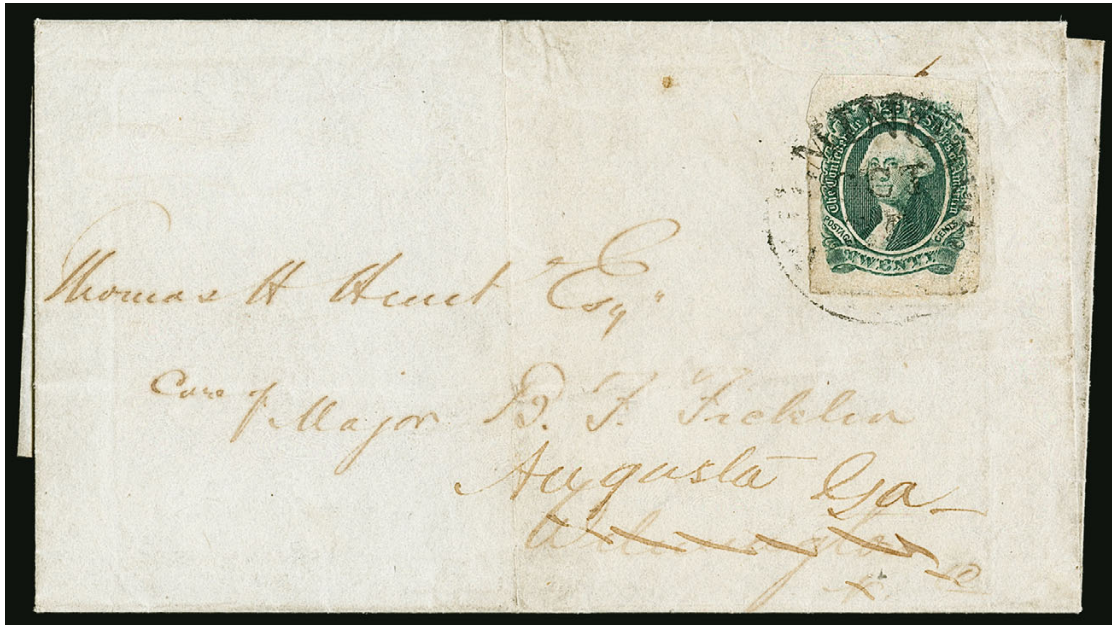 The Confederate States of America
POSTAGE CENTS
TWENTY
Thomas H Hunt Esqr
Care of
Major B. F. Ficklin
Augusta Ga
Wilmington